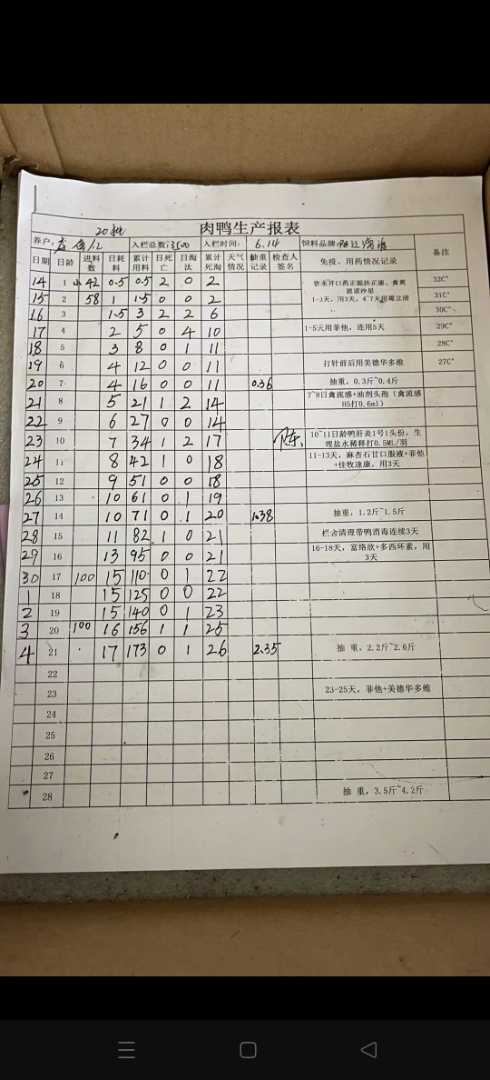 20批 肉鸭生产报表
养户: 入栏总数:3500 入栏时间: 6.14 饲料品牌:
日期 日龄 进料数 日耗料 累计用料 日死亡 日淘汰 累计死淘 天气情况 抽重记录 检查人签名 免疫、用药情况记录 备注
14 1 小42 0.5 0.5 2 0 2 32C°
15 2 58 1 1.5 0 0 2 31C°
16 3 1.5 3 2 2 6 30C°
17 4 2 5 0 4 10 1-5元用菲他，连用5天 29C°
18 5 3 8 0 1 11 28C°
19 6 4 12 0 0 11 打针前后用美德华多维 27C°
20 7 4 16 0 0 11 0.36 抽重，0.3斤~0.4斤
21 8 5 21 1 2 14 7~8日禽流感+油剂头孢（禽流感H5打0.6ml）
22 9 6 27 0 0 14
23 10 7 34 1 2 17 10~11日龄鸭肝炎1号1头份，生理盐水稀释打0.5ML/羽
24 11 8 42 1 0 18 11-13天，麻杏石甘口服液+菲他+佳牧速康，用3天
25 12 9 51 0 0 18
26 13 10 61 0 1 19
27 14 10 71 0 1 20 1.38 抽重，1.2斤~1.5斤
28 15 11 82 1 0 21 栏舍清理带鸭消毒连续3天
29 16 13 95 0 0 21 16-18天，富络欣+多西环素，用3天
30 17 100 15 110 0 1 22
1 18 15 125 0 0 22
2 19 15 140 0 1 23
3 20 100 16 156 1 1 25
4 21 17 173 0 1 26 2.35 抽 重，2.2斤~2.6斤
22
23 23-25天，菲他+美德华多维
24
25
26
27
28 抽 重，3.5斤~4.2斤